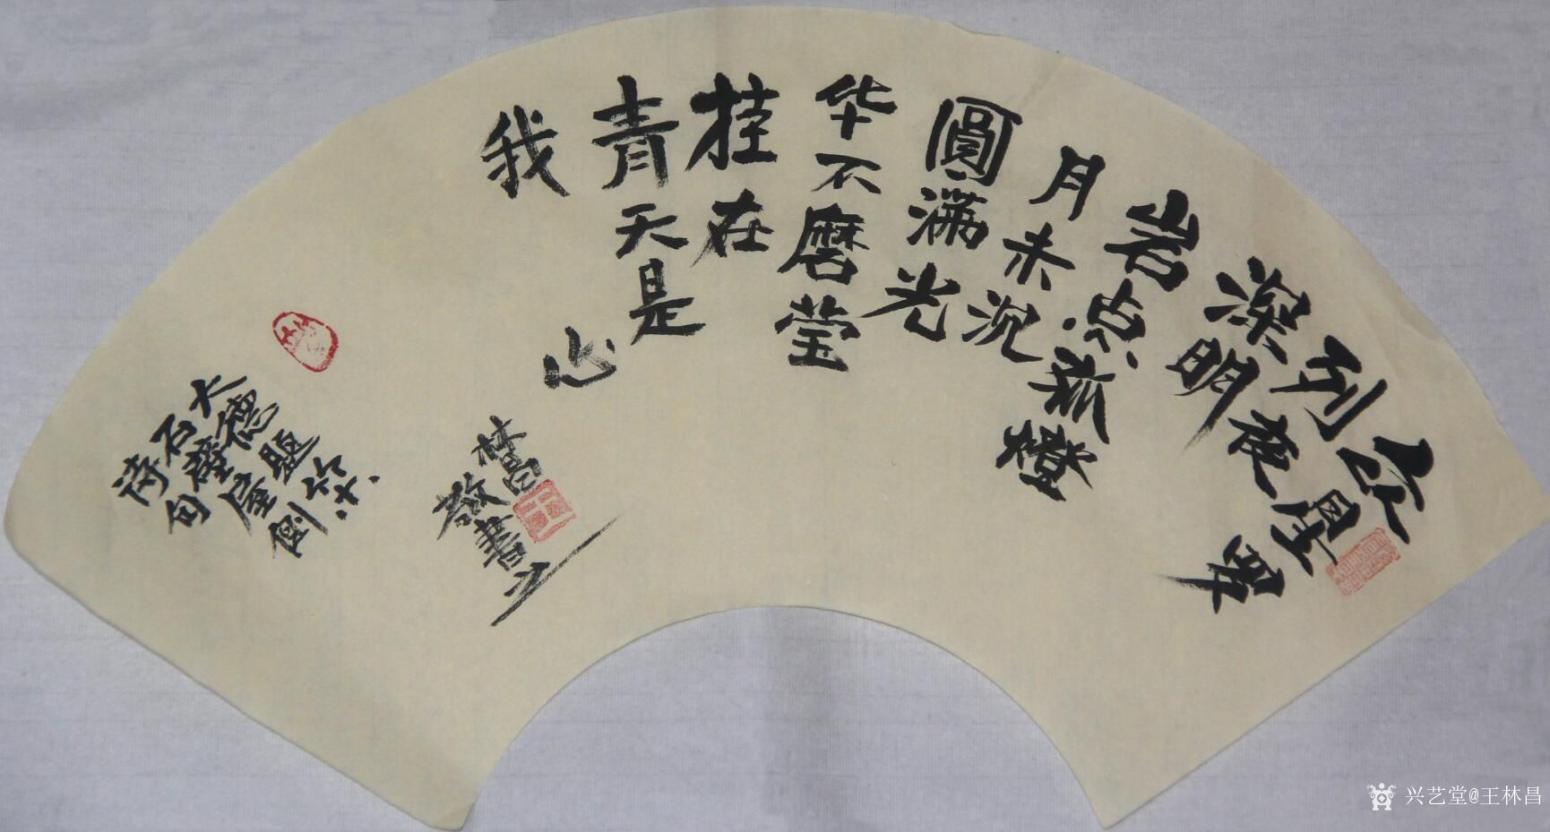 众星罗
列夜
深明
岩点孤燈
月未沉
圓满光
华不磨莹
挂在
青天是
我心
林昌
敬書之
大德題竹木
石壁屋側
诗句
兴艺堂@王林昌